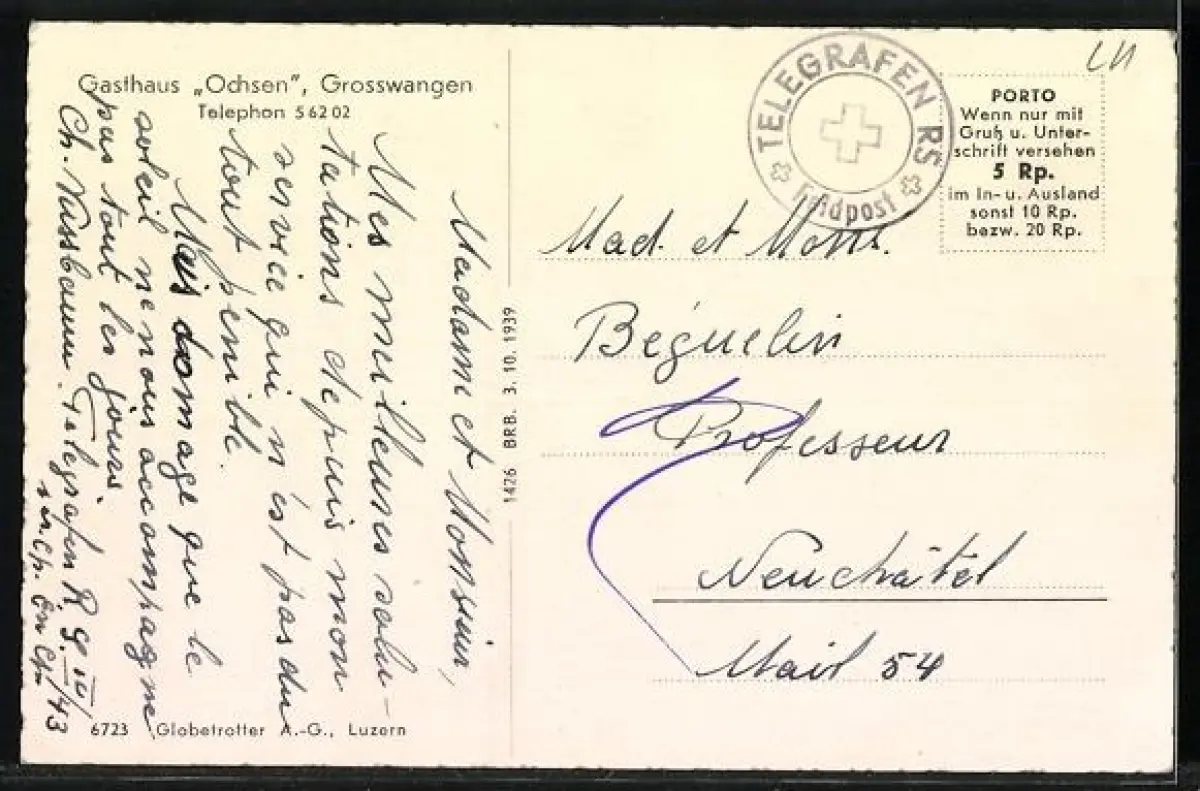 Gasthaus „Ochsen", Grosswangen
Telephon 5 62 02
Madame et Monsieur,
Mes meilleures salu-
tations depuis mon
service qui n'est pas du
tout pénible.
Mais domage que le
soleil ne nous accompagne
pas tout les jours.
Ch. Nussbaum. Telegrafen R.S. III/43
6723 Globetrotter A.-G., Luzern
1426 BRB. 3. 10. 1939
TELEGRAFEN RS
Feldpost
LU
PORTO
Wenn nur mit
Gruß u. Unter-
schrift versehen
5 Rp.
im In- u. Ausland
sonst 10 Rp.
bezw. 20 Rp.
Mad. et Mons.
Béguelin
Professeur
Neuchâtel
Mail 54